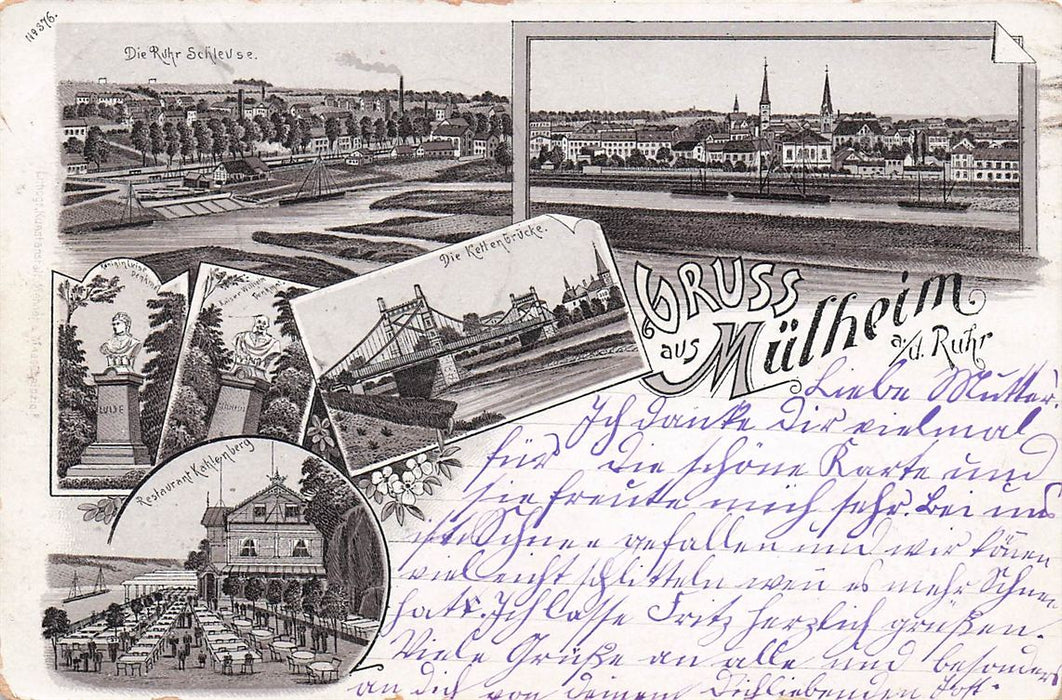 No 376.
Die Ruhr Schleuse.
Königin Luise
Denkmal
Kaiser Wilhelm
Denkmal
LUISE
Die Kettenbrücke.
Restaurant Kahlenberg
GRUSS
aus Mülheim
a./d. Ruhr
Liebe Mutter.
Ich danke Dir vielmal
für die schöne Karte und
sie freute mich sehr. Bei uns
ist Schnee gefallen und wir könen
vieleicht schlitteln wen es mehr Schnee
hat. Ich lasse Fritz herzlich grüßen.
Viele Grüße an alle und besonders
an dich von deinem Dichliebenden